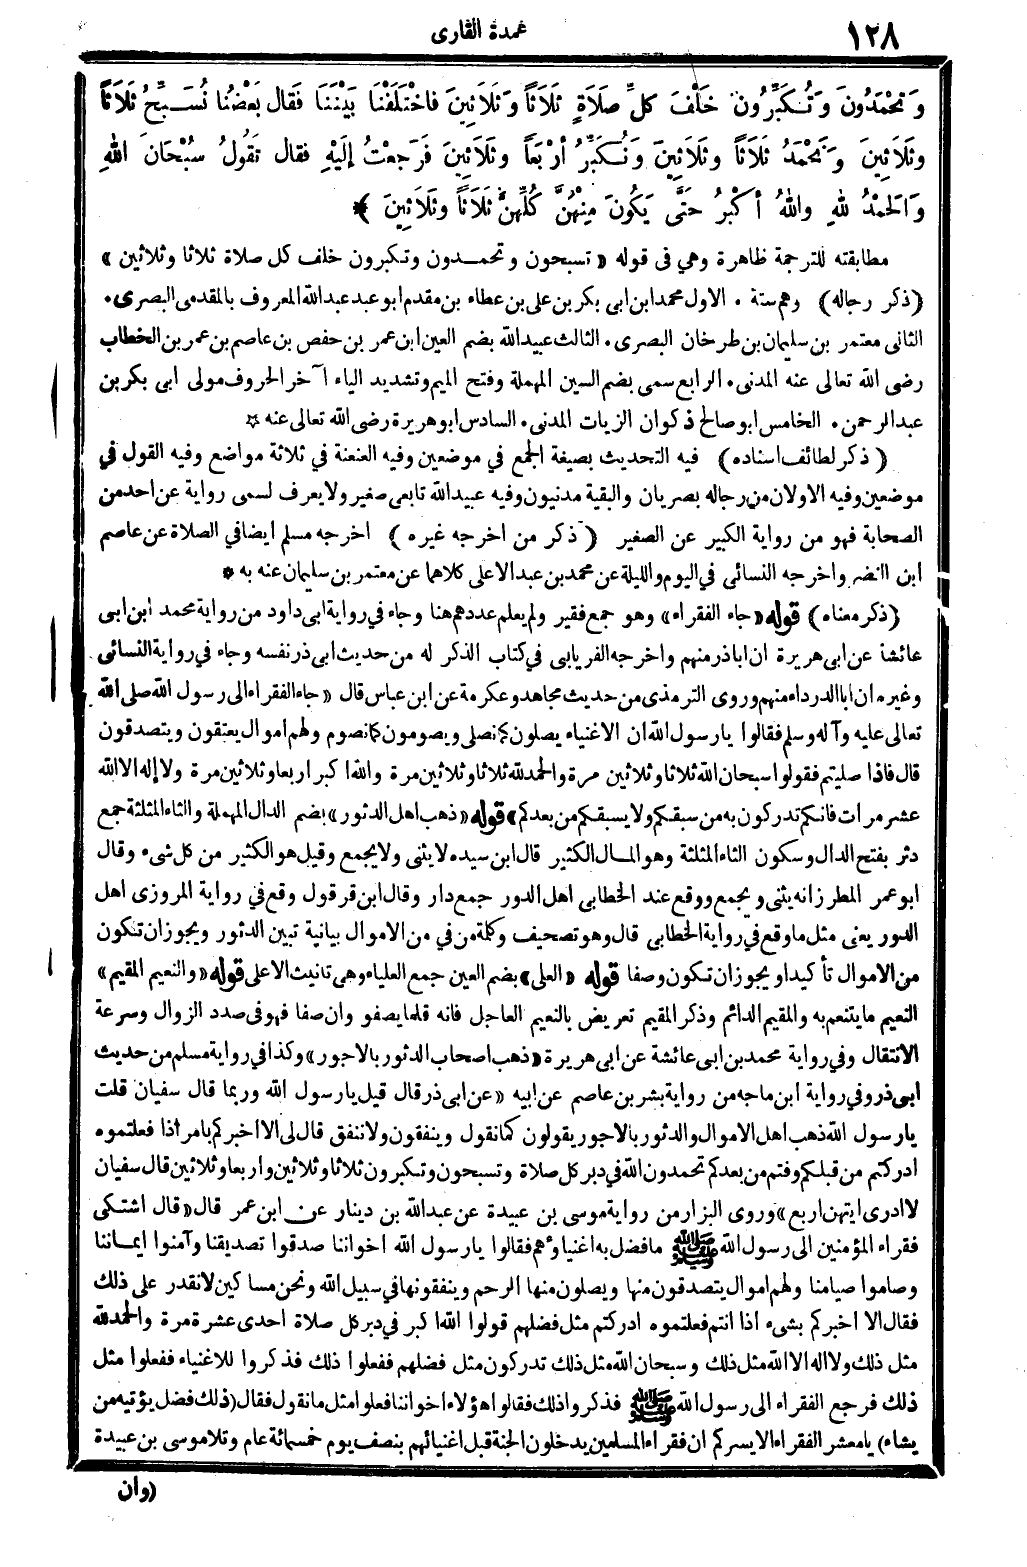 ١٢٨
عمدة القارى
وَتَحْمَدُونَ وَتُكَبِّرُونَ خَلْفَ كلِّ صلَاَةٍ ثَلَاَثاً وَثَلاَثِينَ فاخْتَلَفْنَا بَيْنَنَا فَقال بَعْضُنا نُسَبِّحُ ثَلاَثاً
وثَلاَثِينَ وَنَحْمَدُ ثَلاثاً وثلَاَثِينَ ونُكَبِّرُ أرْبَعاً وثلاَثِينَ فَرَجعْتُ إلَيْهِ فقال تَقُولُ سُبْحَانَ اللهِ
وَالحَمْدُ للهِ واللهُ أكْبرُ حَتَّى يَكُونَ مِنْهُنَّ كُلِّهِنَّ ثَلاَثاً وثَلاَثِينَ ﴾ *
مطابقته للترجمة ظاهرة وهي فى قوله « تسبحون وتحمدون وتكبرون خلف كل صلاة ثلاثا وثلاثين »
(ذكر رجاله) وهم ستة . الاول محمد ابن ابى بكر بن على بن عطاء بن مقدم ابو عبد عبدالله المعروف بالمقدمى البصرى.
الثانى معتمر بن سليمان بن طرخان البصرى . الثالث عبيد الله بضم العين ابن عمر بن حفص بن عاصم بن عمر بن الخطاب
رضى الله تعالى عنه المدنى . الرابع سمى بضم السين المهملة وفتح الميم وتشديد الياء آخر الحروف مولى ابى بكر بن
عبدالرحمن . الخامس ابو صالح ذكوان الزيات المدنى . السادس ابو هريرة رضى الله تعالى عنه ☆
(ذكر لطائف اسناده) فيه التحديث بصيغة الجمع في موضعين وفيه العنعنة في ثلاثة مواضع وفيه القول في
موضعين وفيه الاولان من رجاله بصريان والبقية مدنيون وفيه عبيدالله تابعى صغير ولا يعرف لسمى رواية عن احد من
الصحابة فهو من رواية الكبير عن الصغير (ذكر من اخرجه غيره) اخرجه مسلم ايضا في الصلاة عن عاصم
ابن النضر واخرجه النسائى في اليوم والليلة عن محمد بن عبد الاعلى كلاهما عن معتمر بن سليمان عنه به *
(ذكر معناه) قوله «جاء الفقراء» وهو جمع فقير ولم يعلم عددهم هنا وجاء في رواية ابى داود من رواية محمد ابن ابى
عائشة عن ابى هريرة ان اباذر منهم واخرجه الفريابى في كتاب الذكر له من حديث ابى ذر نفسه وجاء في رواية النسائى
وغيره ان ابا الدرداء منهم وروى الترمذى من حديث مجاهد وعكرمة عن ابن عباس قال «جاء الفقراء الى رسول الله صلى الله
تعالى عليه وآله وسلم فقالوا يارسول الله ان الاغنياء يصلون كما نصلى ويصومون كما نصوم ولهم اموال يعتقون ويتصدقون
قال فاذا صليتم فقولوا سبحان الله ثلاثا وثلاثين مرة والحمد لله ثلاثا وثلاثين مرة والله اكبر اربعا وثلاثين مرة ولا إله الا الله
عشر مرات فانكم تدركون به من سبقكم ولا يسبقكم من بعدكم» قوله «ذهب اهل الدثور» بضم الدال المهملة والثاء المثلثة جمع
دثر بفتح الدال وسكون الثاء المثلثة وهو المال الكثير قال ابن سيده لا يثنى ولا يجمع وقيل هو الكثير من كل شىء وقال
ابو عمر المطرز انه يثنى ويجمع ووقع عند الخطابى اهل الدور جمع دار وقال ابن قرقول وقع في رواية المروزى اهل
الدور يعنى مثل ما وقع في رواية الخطابى قال وهو تصحيف وكلمة من في من الاموال بيانية تبين الدثور ويجوز ان تكون
من الاموال تأكيدا ويجوز ان تكون وصفا قوله «العلى» بضم العين جمع العلياء وهى تانيث الاعلى قوله «والنعيم المقيم»
النعيم ما يتنعم به والمقيم الدائم وذكر المقيم تعريض بالنعيم العاجل فانه قلما يصفو وان صفا فهو فى صدد الزوال وسرعة
الانتقال وفى رواية محمد بن ابى عائشة عن ابى هريرة «ذهب اصحاب الدثور بالاجور» وكذا فى رواية مسلم من حديث
ابى ذر وفي رواية ابن ماجه من رواية بشر بن عاصم عن ابيه «عن ابى ذر قال قيل يارسول الله وربما قال سفيان قلت
يارسول الله ذهب اهل الاموال والدثور بالاجور يقولون كما نقول وينفقون ولا ننفق قال لى الا اخبركم بامر اذا فعلتموه
ادركتم من قبلكم وفتم من بعدكم تحمدون الله في دبر كل صلاة وتسبحون وتكبرون ثلاثا وثلاثين واربعا وثلاثين قال سفيان
لا ادرى ايتهن اربع» وروى البزار من رواية موسى بن عبيدة عن عبدالله بن دينار عن ابن عمر قال «قال اشتكى
فقراء المؤمنين الى رسول الله ﷺ ما فضل به اغنياؤهم فقالوا يارسول الله اخواننا صدقوا تصديقنا وآمنوا ايماننا
وصاموا صيامنا ولهم اموال يتصدقون منها ويصلون منها الرحم وينفقونها في سبيل الله ونحن مساكين لانقدر على ذلك
فقال الا اخبركم بشىء اذا انتم فعلتموه ادركتم مثل فضلهم قولوا الله اكبر في دبر كل صلاة احدى عشرة مرة والحمد لله
مثل ذلك ولا اله الا الله مثل ذلك وسبحان الله مثل ذلك تدركون مثل فضلهم ففعلوا ذلك فذكروا للاغنياء ففعلوا مثل
ذلك فرجع الفقراء الى رسول الله ﷺ فذكروا ذلك فقالوا هؤلاء اخواننا فعلوا مثل ما نقول فقال (ذلك فضل يؤتيه من
يشاء) يا معشر الفقراء الا يسركم ان فقراء المسلمين يدخلون الجنة قبل اغنيائهم بنصف يوم خمسمائة عام وتلا موسى بن عبيدة
(وان